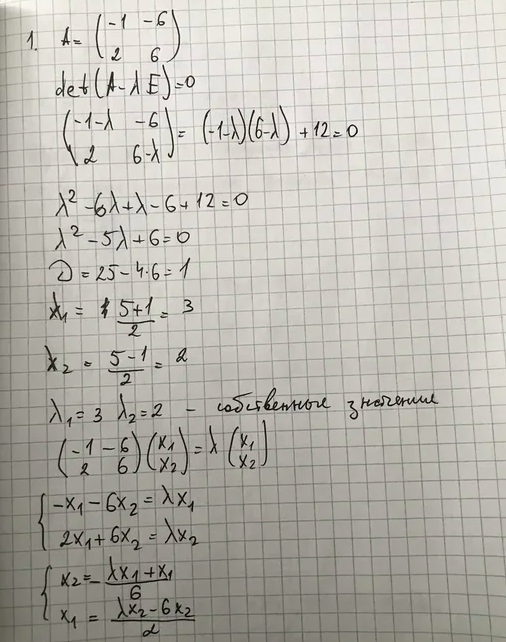 1. A = (-1 -6
2 6)
det(A-λE)=0
(-1-λ -6
2 6-λ) = (-1-λ)(6-λ) + 12 = 0
λ² - 6λ + λ - 6 + 12 = 0
λ² - 5λ + 6 = 0
D = 25 - 4·6 = 1
λ₁ = (5+1)/2 = 3
λ₂ = (5-1)/2 = 2
λ₁ = 3 λ₂ = 2 - собственные значения
(-1 -6
2 6)(x₁
x₂) = λ(x₁
x₂)
{ -x₁ - 6x₂ = λx₁
2x₁ + 6x₂ = λx₂
{ x₂ = -(λx₁ + x₁)/6
x₁ = (λx₂ - 6x₂)/2